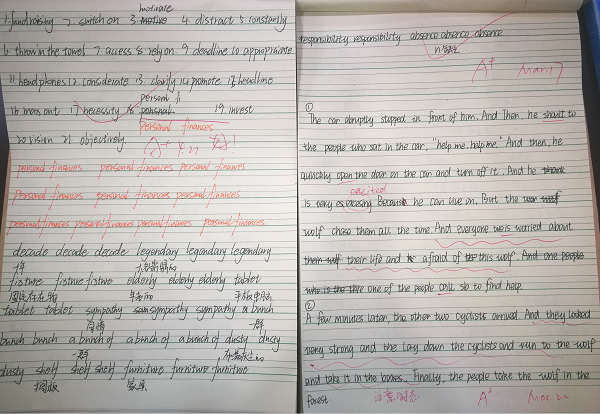 motivate
1. fundraising 2. switch on 3. motive 4. distract 5. constantly
6. throw in the towel 7. access 8. rely on 9. deadline 10 appropriate
11. headphones 12. considerate 13. clarify 14. promote 15. headline
personal fi
16 moms ont 17 necessity 18 personal 19. invest
personal finances
20 vision 21 objectively A+
personal finances personal finances personal finances
personal finances personal finances personal finances
personal finances personal finances personal finances personal finances
decade decade decade legendary legendary legendary
十年
fixture fixture fixture elderly elderly elderly tablet
tablet tablet sympathy sympathy sympathy a bunch
同情 一群
bunch bunch a bunch of a bunch of a bunch of dusty dusty
一群
dusty shelf shelf shelf furniture furniture furniture
家具
responsibility responsibility absence absence absence
A+ Mar.17
①
The car abruptly stopped in front of him. And Then, he shout to
the people who sat in the car, "help me, help me." And then, he
quickly open the door on the car and turn off it. And he thank
excited
is very exciting Because he can live on. But the wor wolf
wolf chase them all the time. And everyone were is worried about
them wolf their life and is afraid of this wolf. And one people
who is the three one of the people call sb to find help.
②
A few minutes later, the other two cyclists arrived. And they looked
very strong and the lay down the cyclists and run to the wolf
and take it in the bones. Finally, the people take the wolf in the
forest. 注意时态 A+ Mar.22